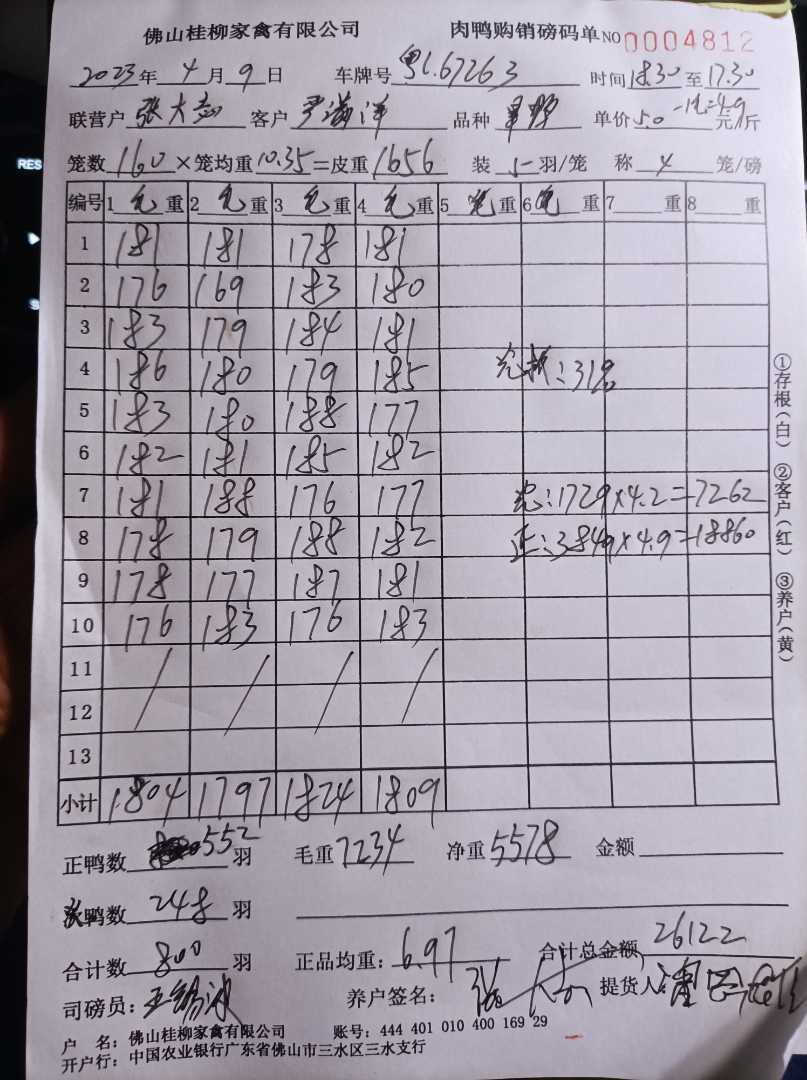 佛山桂柳家禽有限公司 肉鸭购销磅码单 NO 0004812
2023年 4月 9日 车牌号 粤L67263 时间 18:30 至 17.30
联营户 张大志 客户 严满洋 品种 单价 5.0 元/斤
笼数 160 ×笼均重 10.35 =皮重 1656 装 5 羽/笼 称 4 笼/磅
编号 1 毛重 2 毛重 3 毛重 4 毛重 5 毛重 6 毛重 7 重 8 重
1 181 181 178 181
2 176 169 183 180
3 183 179 184 181
4 186 180 179 185
5 183 180 188 177
6 182 181 185 182
7 181 188 176 177 :1729×4.2=7262
8 178 179 188 182 正:3849×4.9=18860
9 178 177 187 181
10 176 183 176 183
11 / / / /
12
13
小计 1804 1797 1824 1809
正鸭数 552 羽 毛重 7234 净重 5578 金额
次鸭数 248 羽
合计数 800 羽 正品均重: 6.97 合计总金额 26122
司磅员: 养户签名: 提货人:
户 名: 佛山桂柳家禽有限公司 账号: 444 401 010 400 169 29
开户行: 中国农业银行广东省佛山市三水区三水支行
①存根(白) ②客户(红) ③养户(黄)
RES